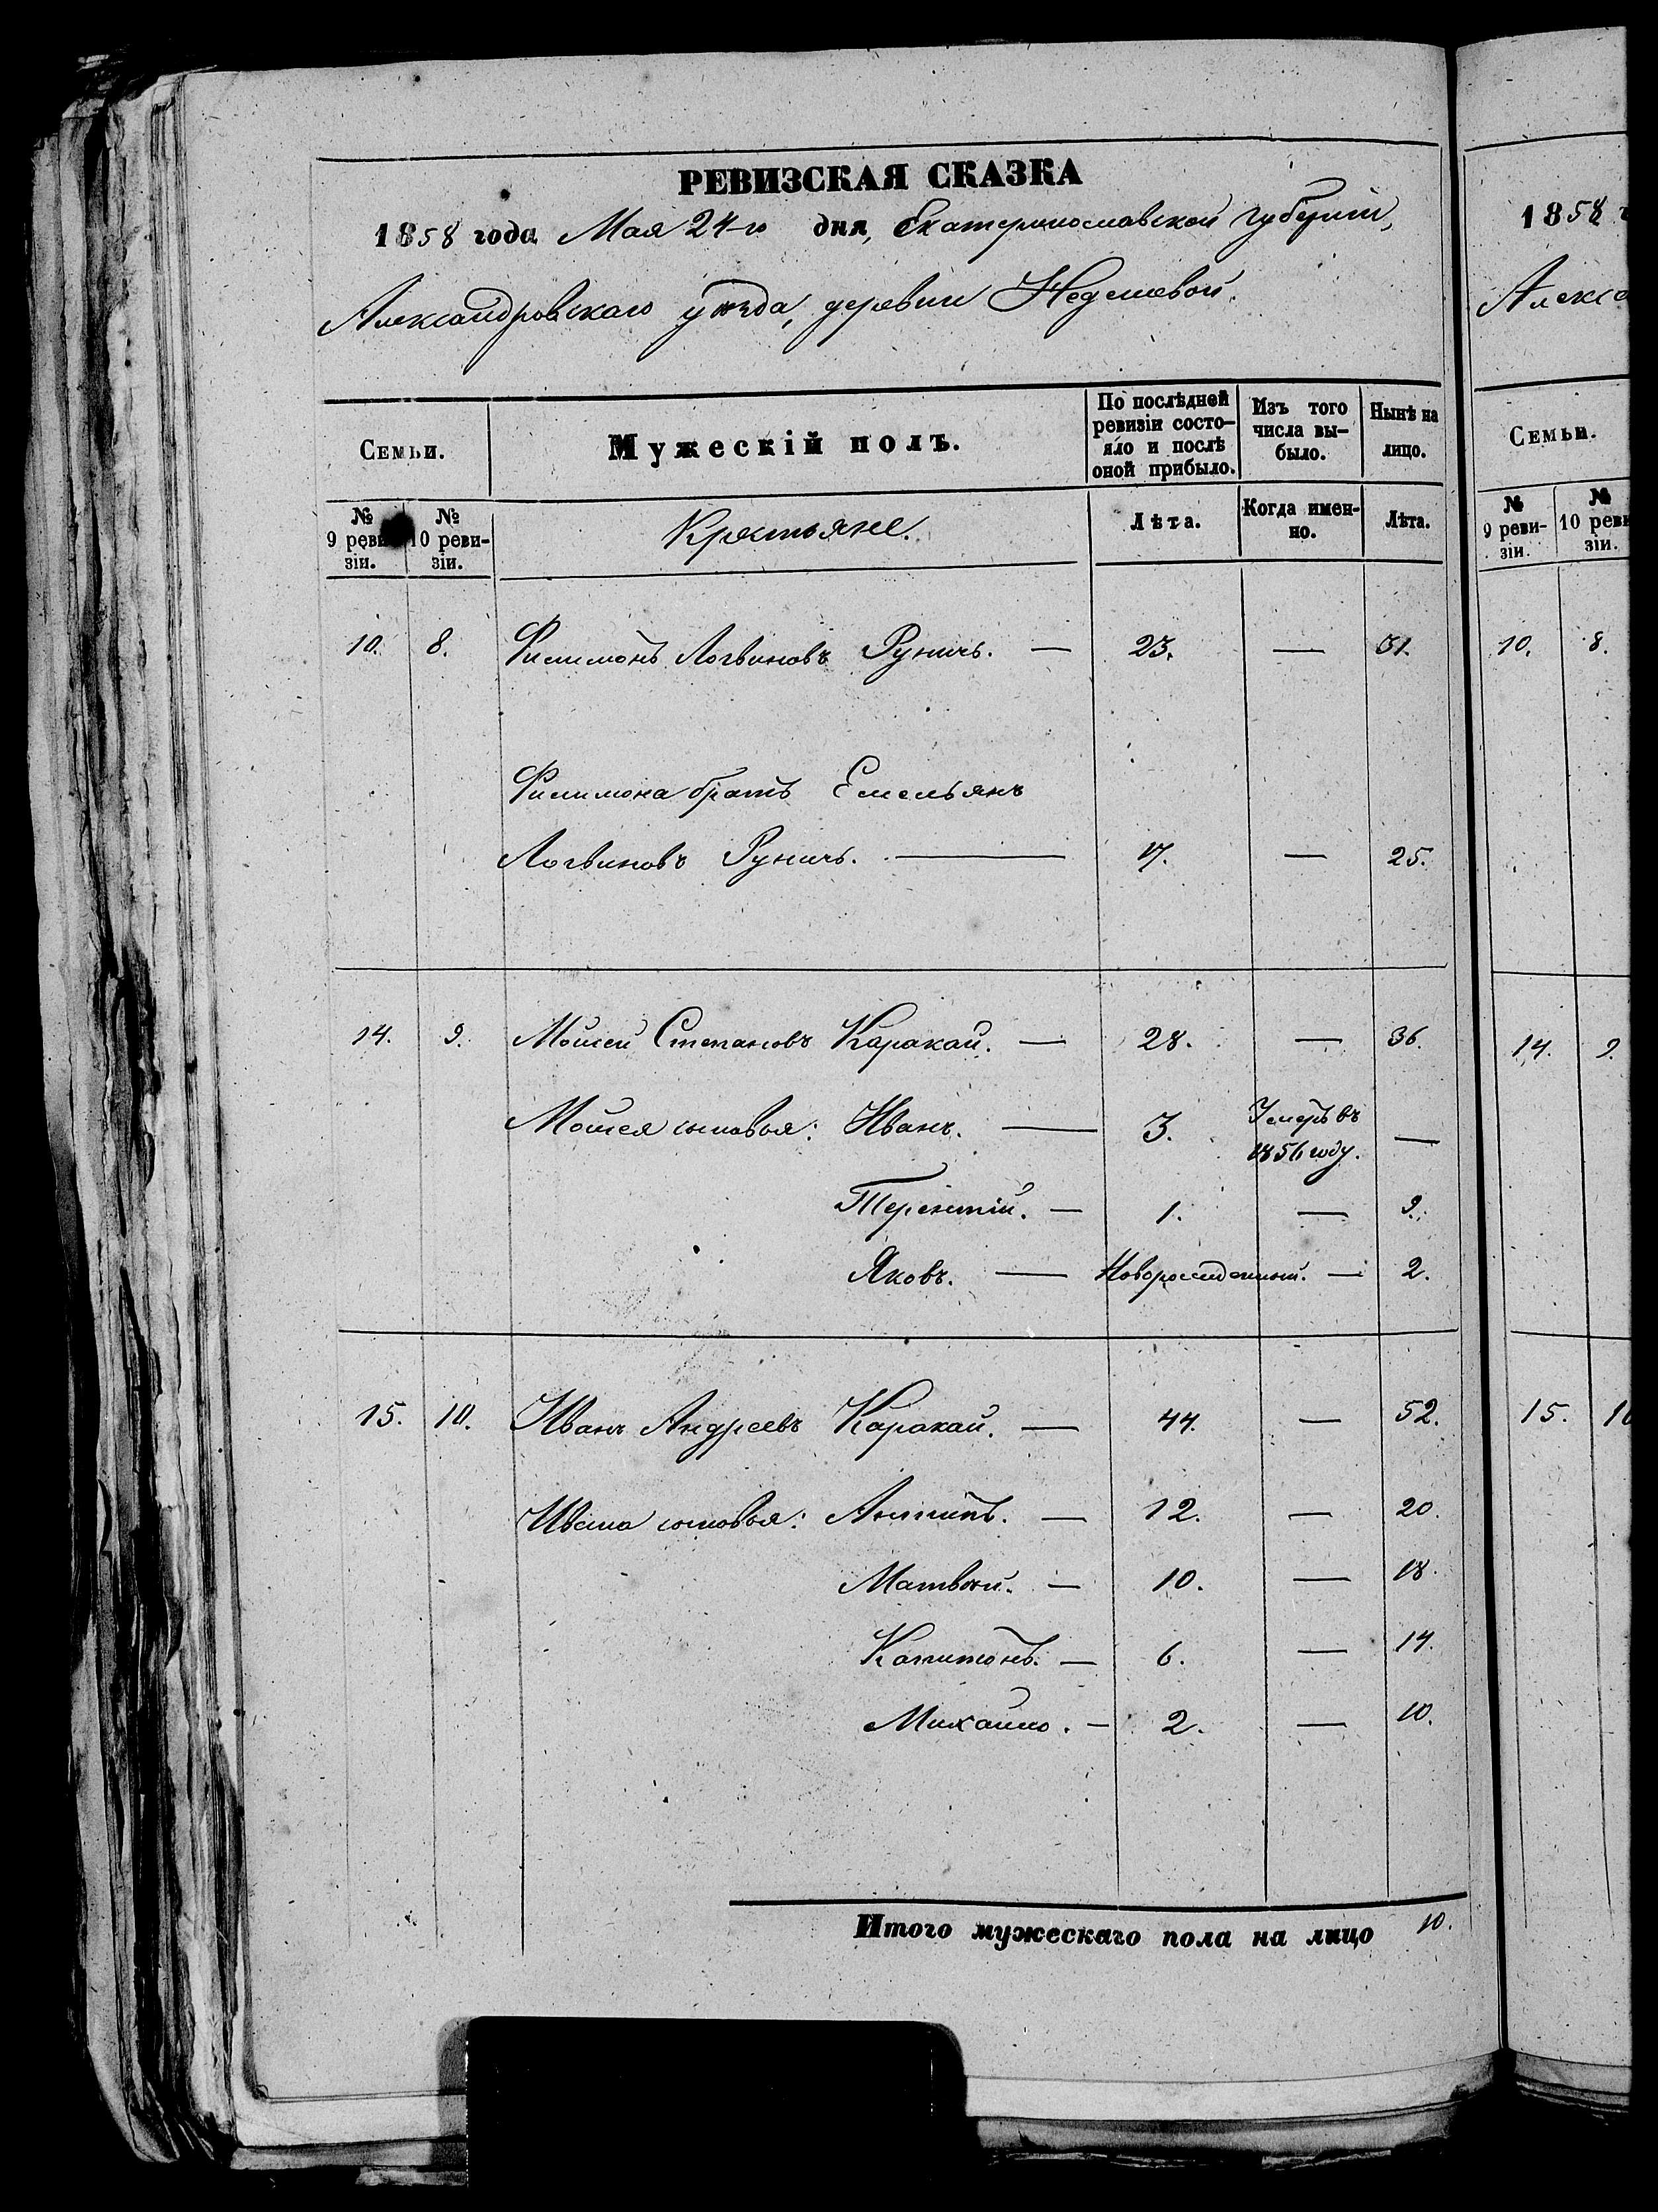 РЕВИЗСКАЯ СКАЗКА
1858 года Мая 24-го дня, Екатеринославской губерніи,
Александровскаго уѣзда, деревни Недешевой.
Семьи.
Мужескій полъ.
По послѣдней ревизіи состо-
яло и послѣ оной прибыло.
Изъ того числа вы-
было.
Нынѣ на лицо.
№ 9 ревизіи.
№ 10 реви-
зіи.
Крестьяне.
Лѣта.
Когда имен-
но.
Лѣта.
10. 8. Филимонъ Логвиновъ Руничъ. — 23. — 31.
Филимона братъ Емельянъ
Логвиновъ Руничъ. — 17. — 25.
14. 9. Мойсей Степановъ Каракай. — 28. — 36.
Мойсея сыновья: Иванъ. — 3. Умеръ въ 1856 году. —
Терентій. — 1. — 9.
Яковъ. — Новорожденный. — 2.
15. 10. Иванъ Андреевъ Каракай. — 44. — 52.
Ивана сыновья: Антипъ. — 12. — 20.
Матвѣй. — 10. — 18.
Капитонъ. — 6. — 14.
Михайло. — 2. — 10.
Итого мужескаго пола на лицо 10.
1858 г
Алекса
Семьи.
№ 9 реви-
зіи.
№ 10 реви
зіи.
10. 8.
14. 9.
15. 10